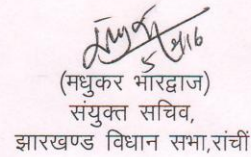 (मधुकर भारद्वाज)
संयुक्त सचिव,
झारखण्ड विधान सभा,रांची